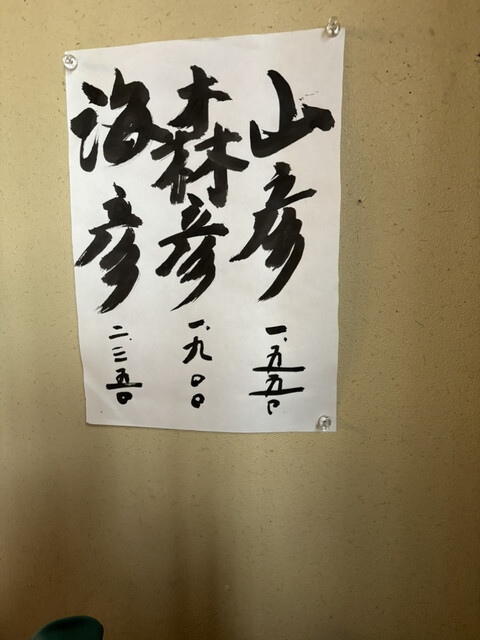 山彦 一、五五〇
森彦 一、九〇〇
海彦 二、二五〇